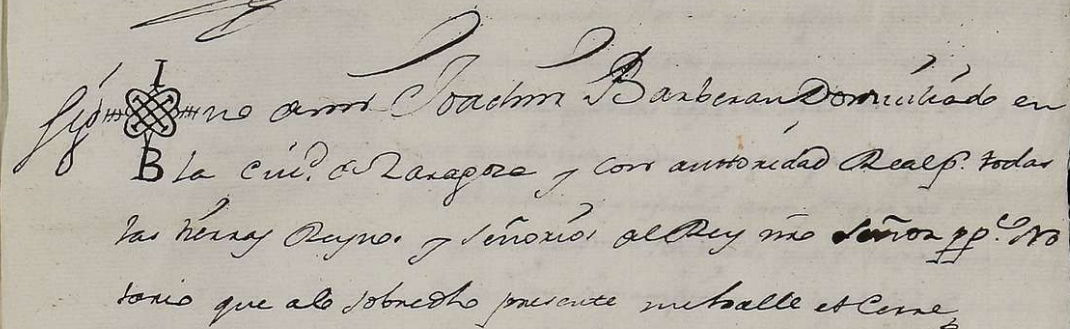 I
Sig no de mi Joachin Barberan Domiciliado en
B la Ciu.d de Zaragoza y con authoridad Real p.r todas
las tierras Reynos y señorios del Rey nro señor pp.co No
tario que a lo sobredho presente me halle et Cerre